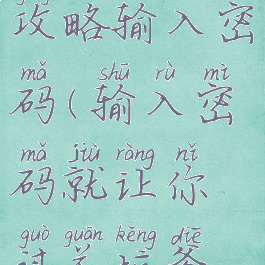 攻略输入密
mǎ shū rù mì
码(输入密
mǎ jiù ràng nǐ
码就让你
guò guān kēng diē
过关坑爹